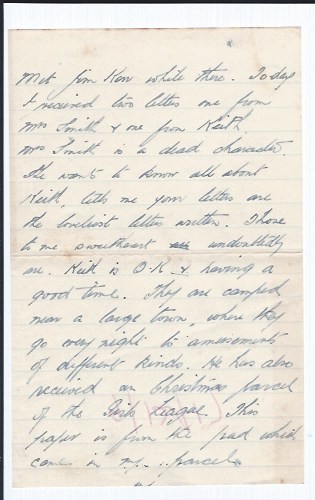 Met Jim Kerr while there. Today
I received two letters one from
Mrs Smith & one from Keith.
Mrs Smith is a dead character.
She wants to know all about
Keith, tells me your letters are
the loveliest letters written. Those
to me sweetheart undoubtedly
are. Keith is O.K & having a
good time. They are camped
near a large town, where they
go every night to amusements
of different kinds. He has also
received an Christmas parcel
of the Girls League. This
paper is from the pad which
came in my parcel